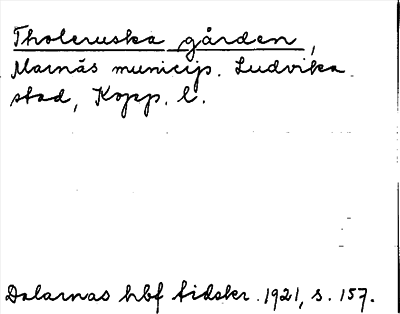 Tholeruska gården,
Marnäs municip. Ludvika
stad, Kopp. l.
Dalarnas hbf tidskr. 1921, s. 157.